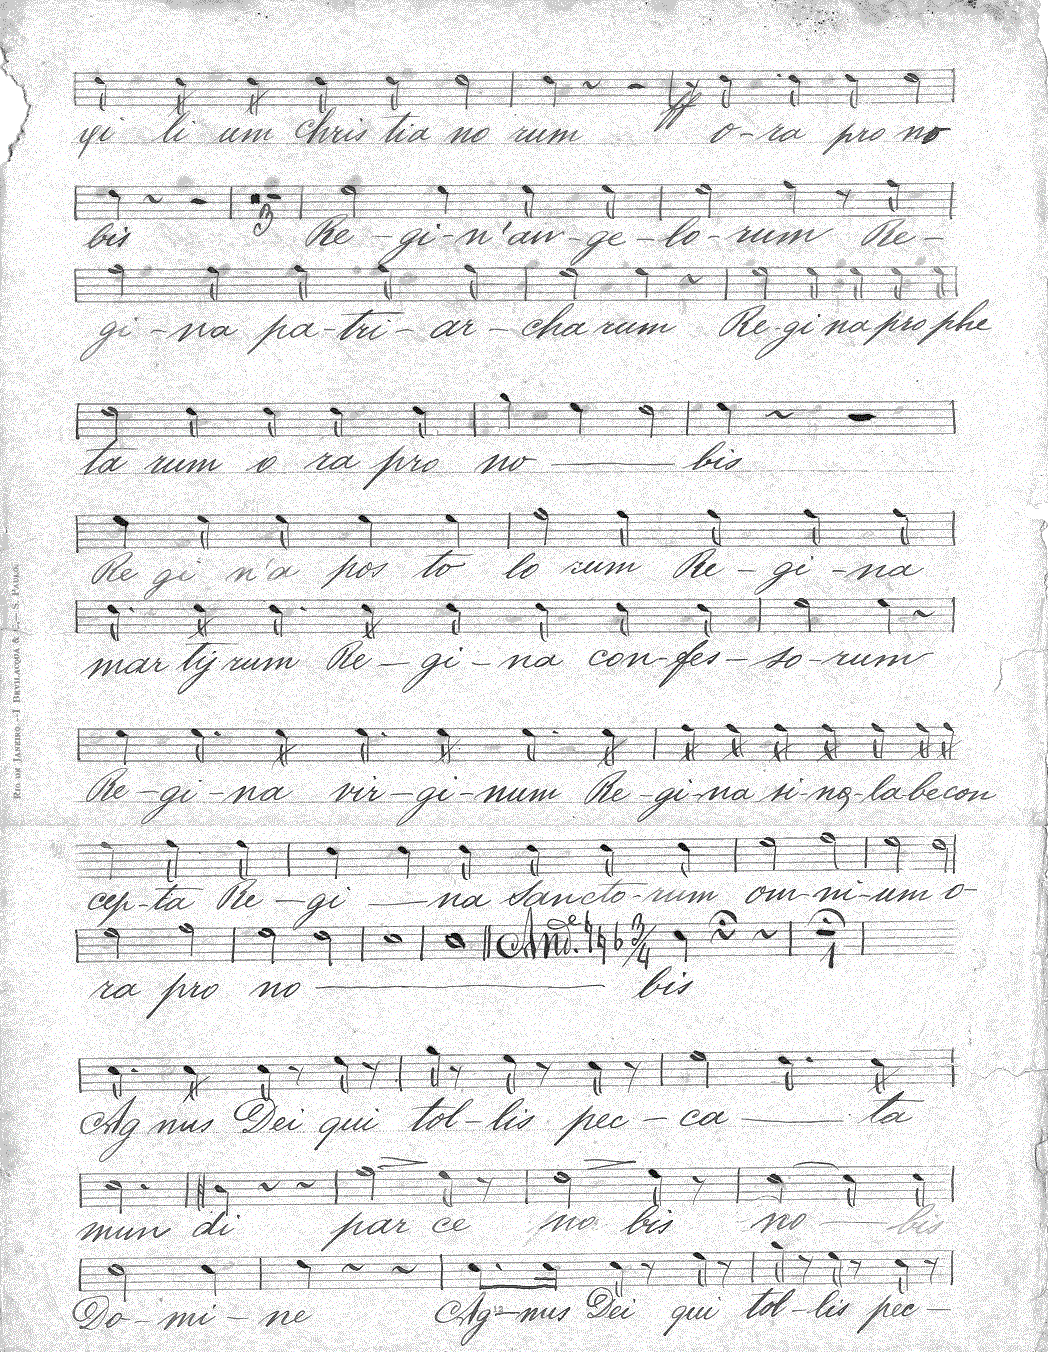 gi li um Chris tia no rum ff o-ra pro no
bis 3 Re-gi-n'an-ge-lo-rum Re-
gi-na pa-tri-ar-cha rum Re-gi na pro phe
ta rum o ra pro no — bis
Re gi n'a pos to lo rum Re-gi-na
mar tÿ rum Re-gi-na con-fes-so-rum
Re-gi-na vir-gi-num Re-gi-na si-ne-labe con
cep-ta Re-gi-na Sancto-rum om-ni-um o-
And.e 3/4 1
ra pro no — bis
Ag nus Dei qui tol-lis pec-ca — ta
mun di par ce no bis no — bis
Do-mi-ne Ag-nus Dei qui tol-lis pec-
RIO DE JANEIRO.—I BEVILACQUA & C.—S. PAULO.